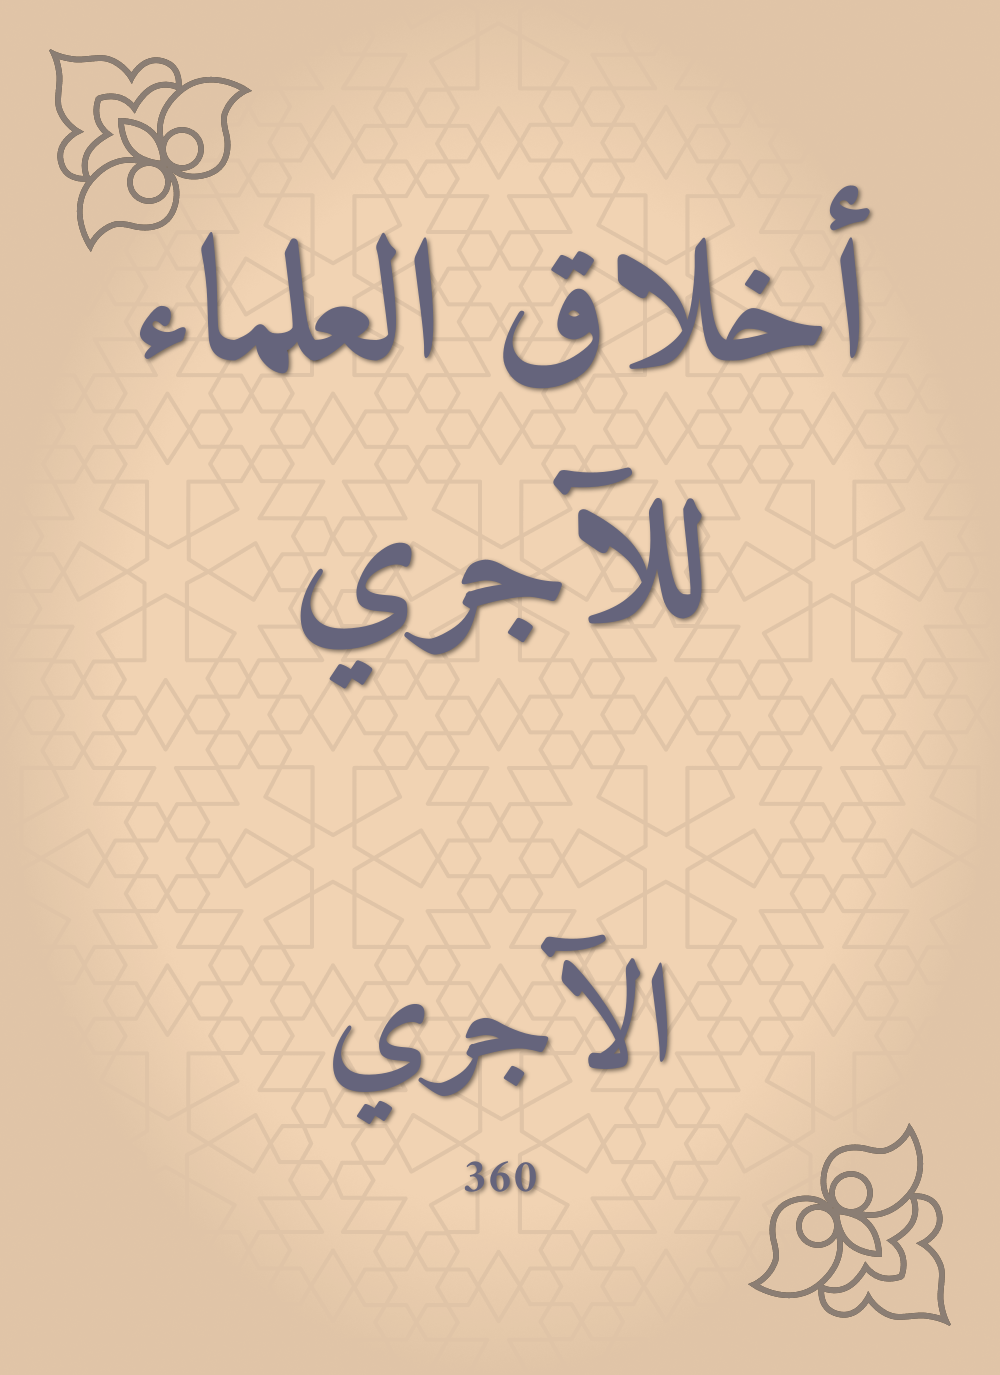 أخلاق العلماء
للآجري
الآجري
360